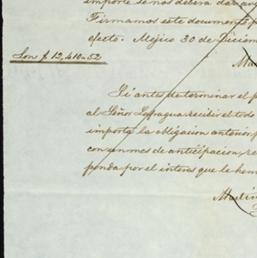 importe se nos deberá dar
Firmamos este documento
efecto. Méjico 30 de Diciem
Son $ 12,410.52
Si antes de terminar el p
al Señor Lafragua recibir el todo
importa la obligacion anterior p
con un mes de anticipacion, re
ponda por el interes que le hem